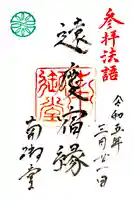 参拝法語
令和五年
三月廿一日
遠慶宿縁
南御堂